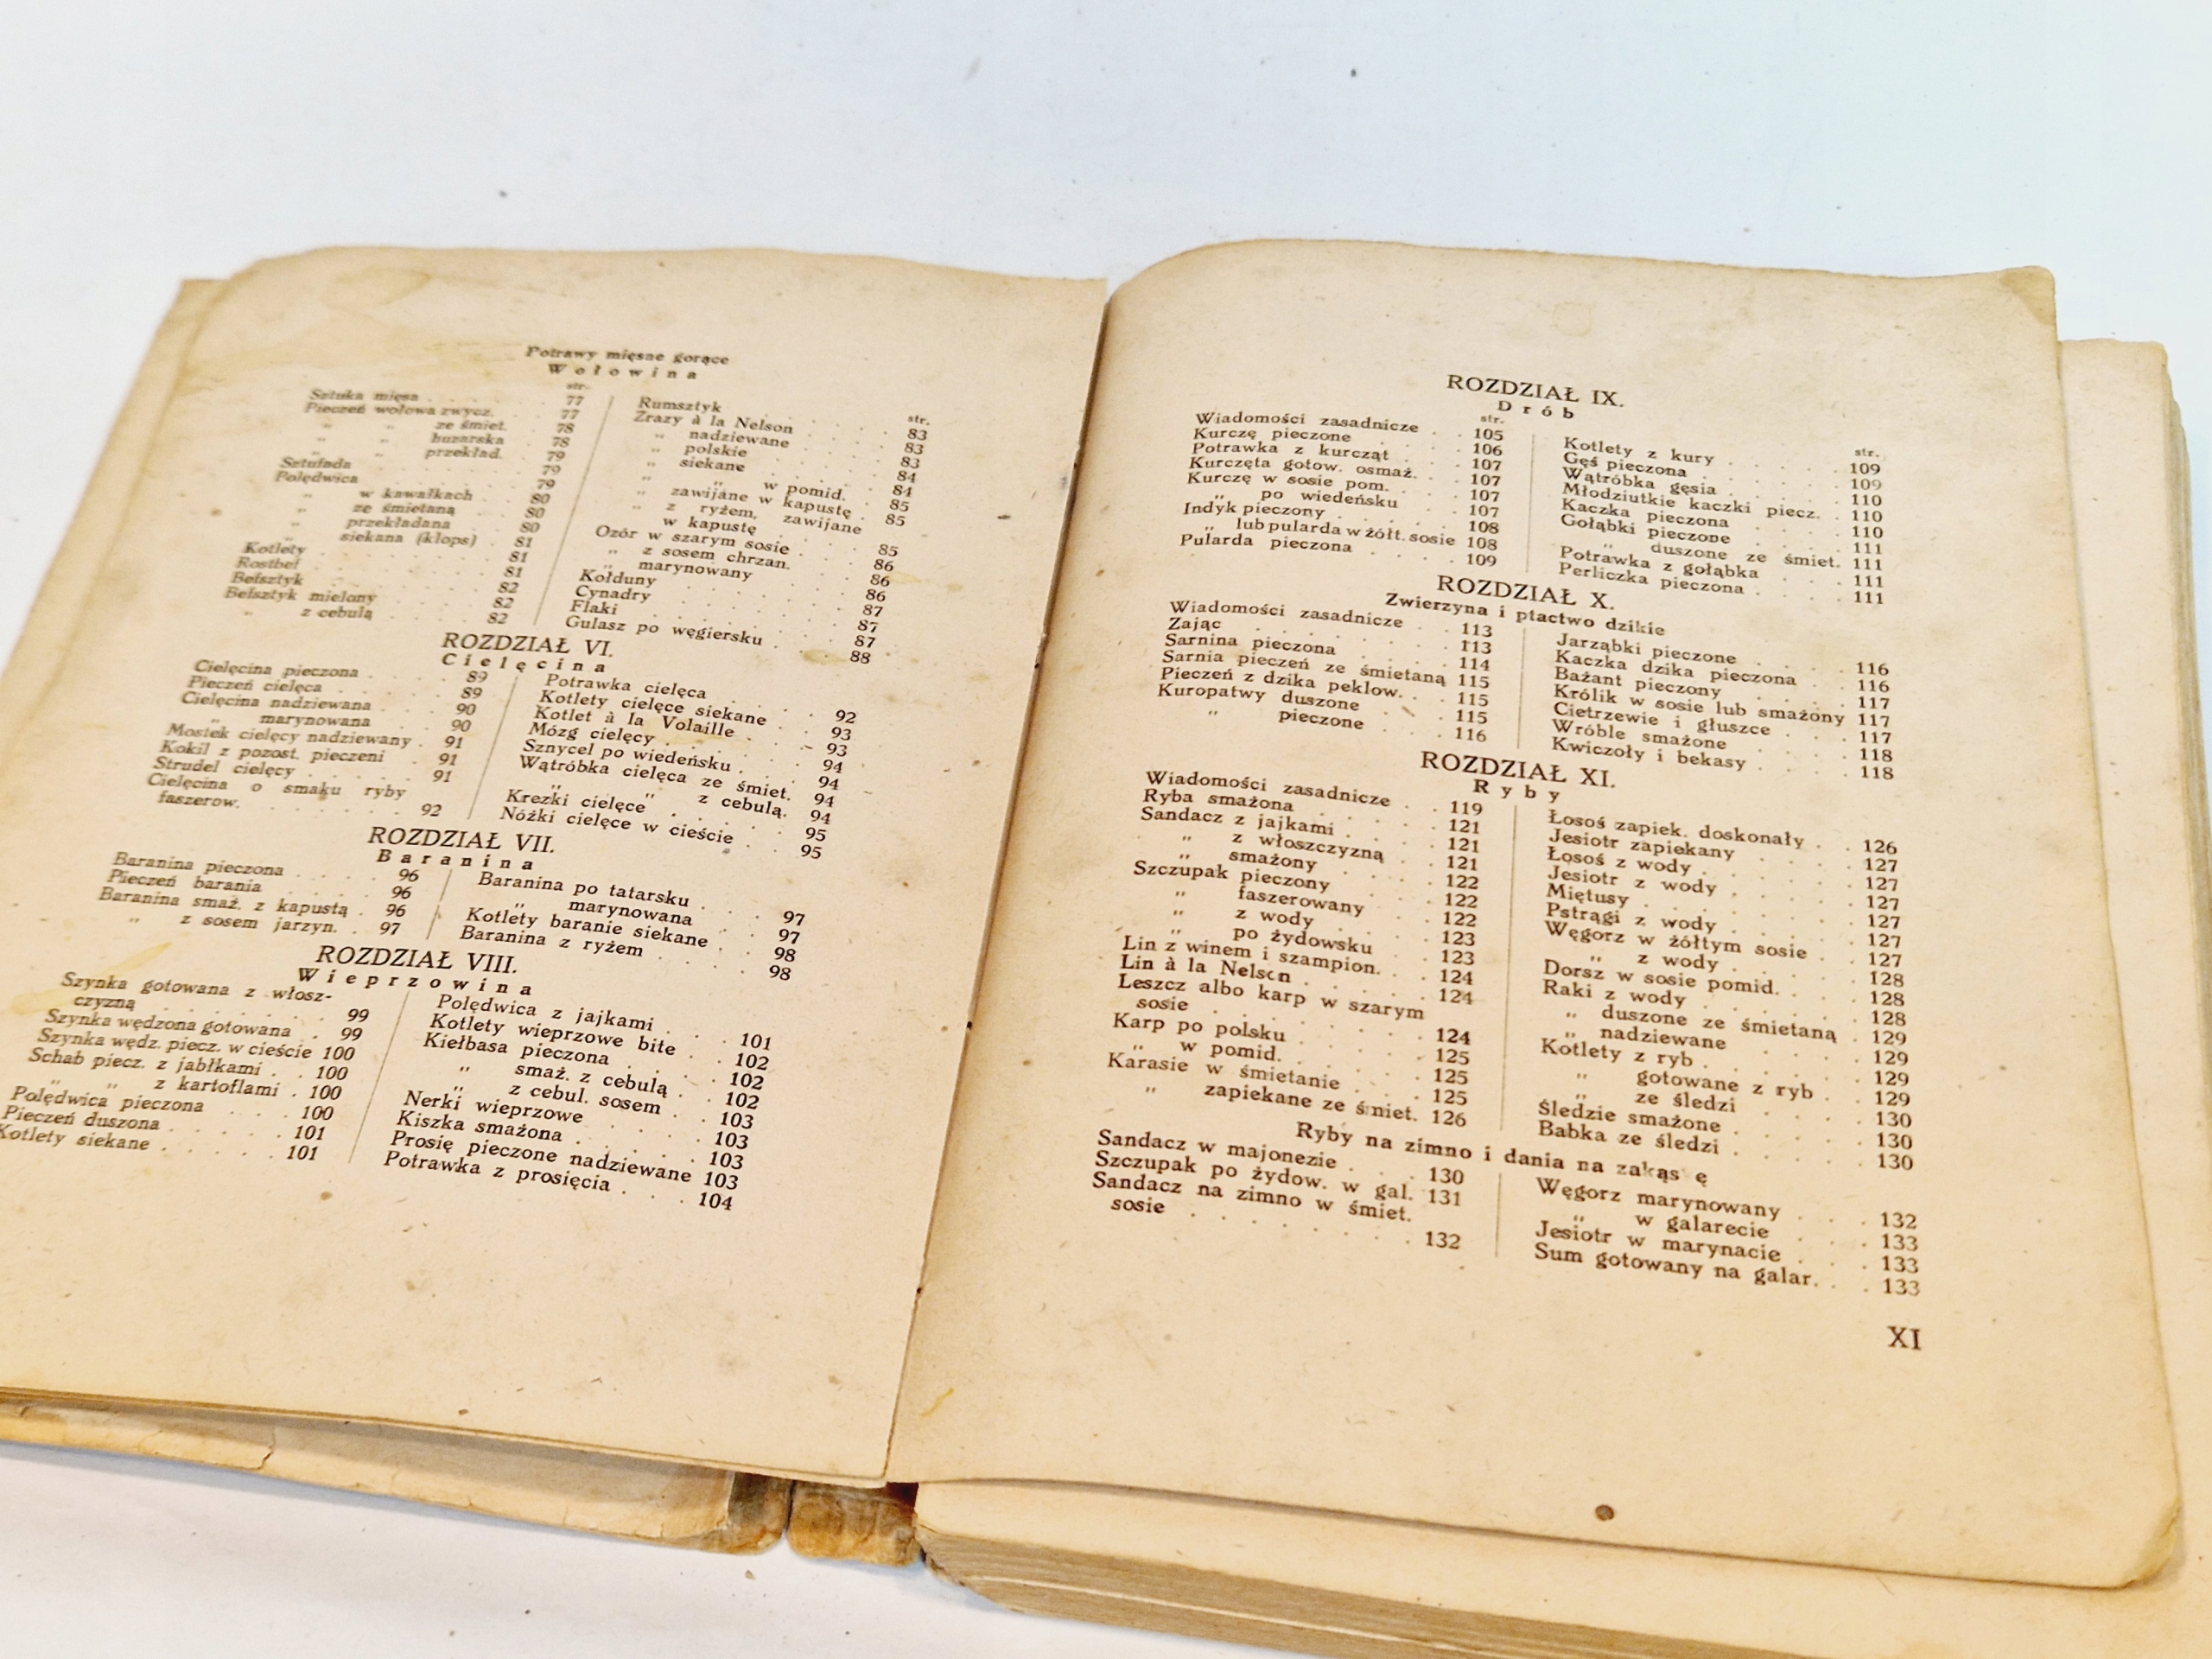 Potrawy mięsne gorące
Wołowina
str.
Sztuka mięsa . . . . . . 77
Pieczeń wołowa zwycz. . 77
„ „ ze śmiet. . 78
„ „ huzarska . 78
„ „ przekład. . 79
Sztufada . . . . . . 79
Polędwica . . . . . . 79
„ w kawałkach . . 80
„ ze śmietaną . . 80
„ przekładana . . 80
„ siekana (klops) . 81
Kotlety . . . . . . 81
Rostbef . . . . . . 81
Befsztyk . . . . . . 82
Befsztyk mielony . . . 82
„ z cebulą . . . 82
str.
Rumsztyk . . . . . 83
Zrazy à la Nelson . . . 83
„ nadziewane . . . 83
„ polskie . . . . 84
„ siekane . . . . 84
„ „ w pomid. . 85
„ zawijane w kapustę . 85
„ z ryżem, zawijane
w kapustę . . . . 85
Ozór w szarym sosie . . . 86
„ z sosem chrzan. . . 86
„ marynowany . . . 86
Kołduny . . . . . . 87
Cynadry . . . . . . 87
Flaki . . . . . . 87
Gulasz po węgiersku . . . 88
ROZDZIAŁ VI.
Cielęcina
Cielęcina pieczona . . . 89
Pieczeń cielęca . . . . 89
Cielęcina nadziewana . . . 90
„ marynowana . . 90
Mostek cielęcy nadziewany . 91
Kokil z pozost. pieczeni . 91
Strudel cielęcy . . . . 91
Cielęcina o smaku ryby
faszerow. . . . . . . 92
Potrawka cielęca . . . . 92
Kotlety cielęce siekane . . 93
Kotlet à la Volaille . . . 93
Mózg cielęcy . . . . . 94
Sznycel po wiedeńsku . . . 94
Wątróbka cielęca ze śmiet. 94
„ „ z cebulą. 94
Krezki cielęce . . . . . 95
Nóżki cielęce w cieście . . 95
ROZDZIAŁ VII.
Baranina
Baranina pieczona . . . . 96
Pieczeń barania . . . . 96
Baranina smaż. z kapustą . 96
„ z sosem jarzyn. . 97
Baranina po tatarsku . . . 97
„ marynowana . . 97
Kotlety baranie siekane . . 98
Baranina z ryżem . . . . 98
ROZDZIAŁ VIII.
Wieprzowina
Szynka gotowana z włosz-
czyzną . . . . . . . 99
Szynka wędzona gotowana . 99
Szynka wędz. piecz. w cieście 100
Schab piecz. z jabłkami . . 100
„ „ z kartoflami . 100
Polędwica pieczona . . . 100
Pieczeń duszona . . . . . 101
Kotlety siekane . . . . . 101
Polędwica z jajkami . . . 101
Kotlety wieprzowe bite . . 102
Kiełbasa pieczona . . . . 102
„ smaż. z cebulą . . 102
„ z cebul. sosem . . 103
Nerki wieprzowe . . . . 103
Kiszka smażona . . . . . 103
Prosię pieczone nadziewane 103
Potrawka z prosięcia . . . 104
ROZDZIAŁ IX.
Drób
str.
Wiadomości zasadnicze . . 105
Kurczę pieczone . . . . 106
Potrawka z kurcząt . . . 107
Kurczęta gotow. osmaż. . . 107
Kurczę w sosie pom. . . . 107
„ po wiedeńsku . . 107
Indyk pieczony . . . . . 108
„ lub pularda w żółt. sosie 108
Pularda pieczona . . . . 109
str.
Kotlety z kury . . . . . 109
Gęś pieczona . . . . . 109
Wątróbka gęsia . . . . . 110
Młodziutkie kaczki piecz. . 110
Kaczka pieczona . . . . 110
Gołąbki pieczone . . . . 111
„ duszone ze śmiet. 111
Potrawka z gołąbka . . . 111
Perliczka pieczona . . . . 111
ROZDZIAŁ X.
Zwierzyna i ptactwo dzikie
Wiadomości zasadnicze . . 113
Zając . . . . . . . 113
Sarnina pieczona . . . . 114
Sarnia pieczeń ze śmietaną 115
Pieczeń z dzika peklow. . . 115
Kuropatwy duszone . . . 115
„ pieczone . . . 116
Jarząbki pieczone . . . . 116
Kaczka dzika pieczona . . 116
Bażant pieczony . . . . 117
Królik w sosie lub smażony 117
Cietrzewie i głuszce . . . 117
Wróble smażone . . . . 118
Kwiczoły i bekasy . . . . 118
ROZDZIAŁ XI.
Ryby
Wiadomości zasadnicze . . 119
Ryba smażona . . . . . 121
Sandacz z jajkami . . . . 121
„ z włoszczyzną . . 121
„ smażony . . . . 122
Szczupak pieczony . . . 122
„ faszerowany . . . 122
„ z wody . . . . 123
„ po żydowsku . . 123
Lin z winem i szampion. . . 124
Lin à la Nelson . . . . . 124
Leszcz albo karp w szarym
sosie . . . . . . . 124
Karp po polsku . . . . . 125
„ w pomid. . . . . 125
Karasie w śmietanie . . . 125
„ zapiekane ze śmiet. 126
Łosoś zapiek. doskonały . . 126
Jesiotr zapiekany . . . . 127
Łosoś z wody . . . . . 127
Jesiotr z wody . . . . . 127
Miętusy . . . . . . . 127
Pstrągi z wody . . . . . 127
Węgorz w żółtym sosie . . 127
„ z wody . . . . . 128
Dorsz w sosie pomid. . . . 128
Raki z wody . . . . . . 128
„ duszone ze śmietaną . 129
„ nadziewane . . . . 129
Kotlety z ryb . . . . . . 129
„ gotowane z ryb . . 129
„ ze śledzi . . . . 130
Śledzie smażone . . . . . 130
Babka ze śledzi . . . . . 130
Ryby na zimno i dania na zakąs ę
Sandacz w majonezie . . . 130
Szczupak po żydow. w gal. 131
Sandacz na zimno w śmiet.
sosie . . . . . . . . 132
Węgorz marynowany . . . 132
„ w galarecie . . . 133
Jesiotr w marynacie . . . 133
Sum gotowany na galar. . . 133
XI